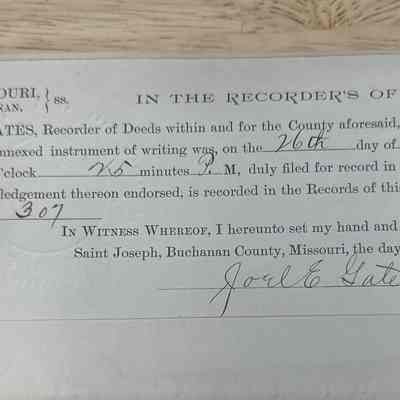 OURI,
RAN. } ss. IN THE RECORDER'S OF
ATES, Recorder of Deeds within and for the County aforesaid,
nnexed instrument of writing was, on the 26th day of
'clock 25 minutes P. M, duly filed for record in
ledgement thereon endorsed, is recorded in the Records of this
307
IN WITNESS WHEREOF, I hereunto set my hand and
Saint Joseph, Buchanan County, Missouri, the day
Joel E Gate